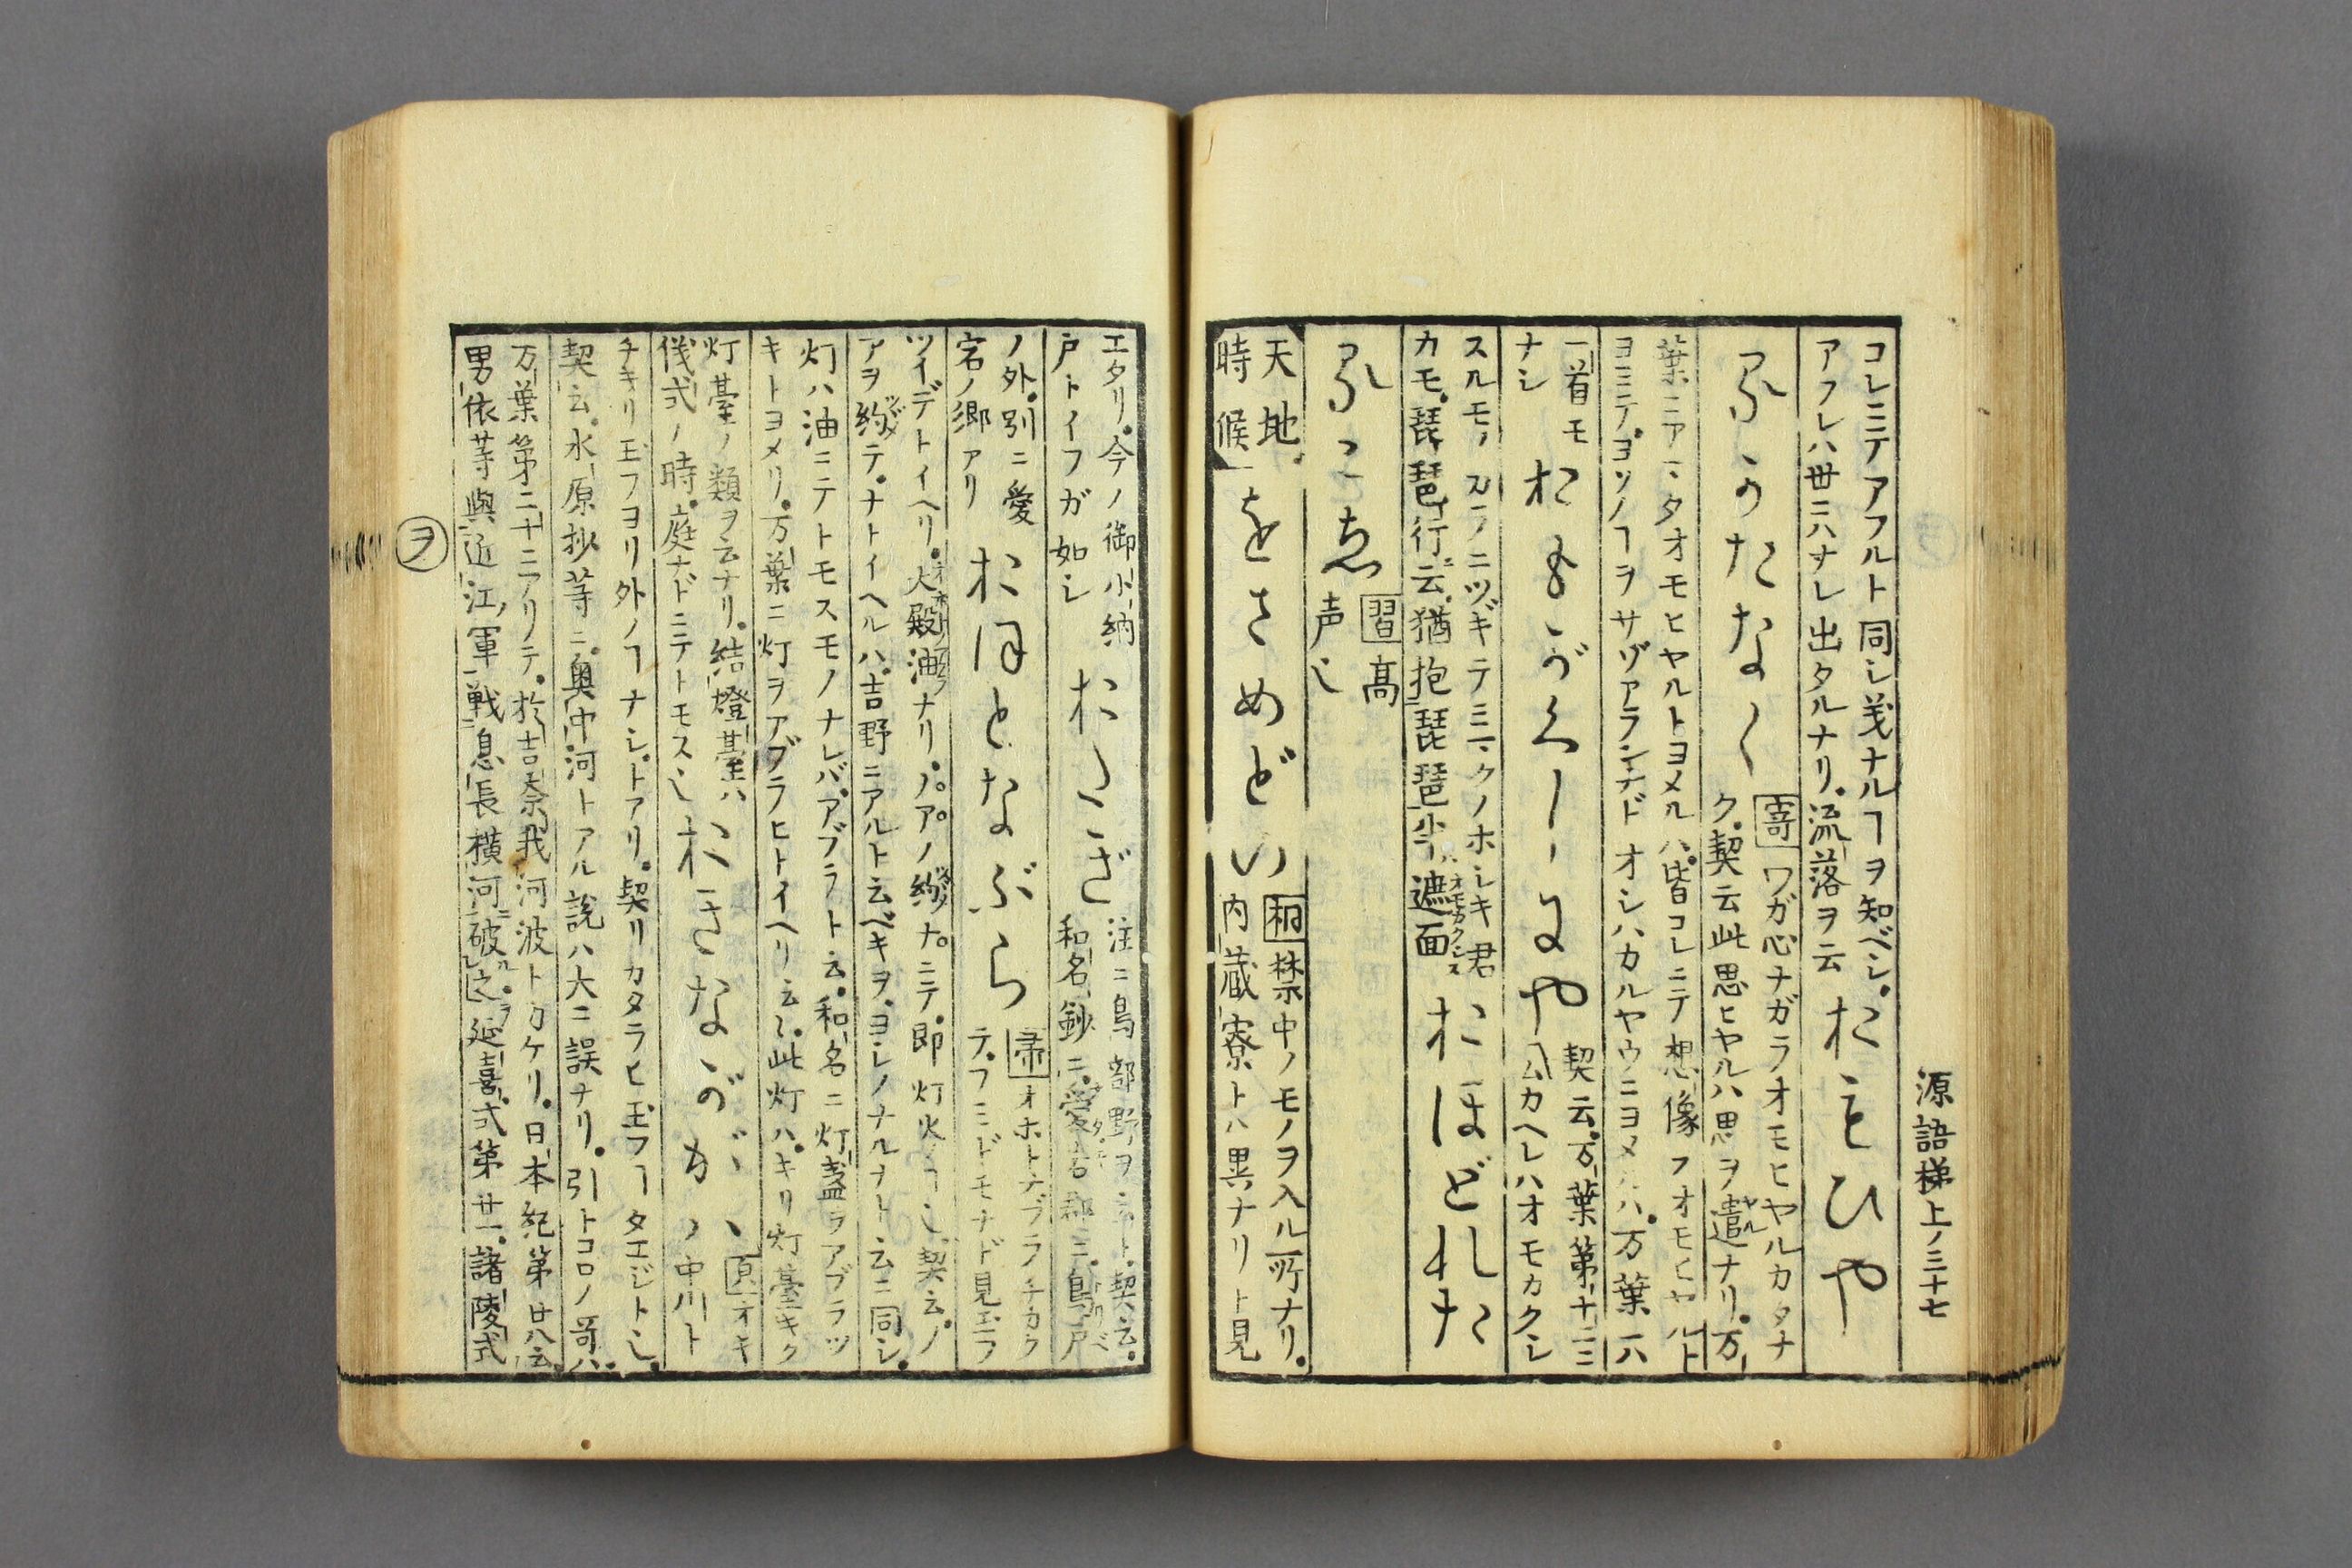 源語梯上ノ三十七
コレニテアフルト同シ義ナルヿヲ知ベシ。
アフレハ世ニハナレ出タルナリ。流落ヲ云
おもひや
るかたなく
寄ワガ心ナガラオモヒヤルカタナ
ク。契云此思ヒヤルハ思ヲ遣ナリ。万
葉ニアマタオモヒヤルトヨメルハ。皆コレニテ想像フオモヒヤルト
ヨミテ。ヨソノヿヲサゾアランナドオシハカルヤウニヨメルハ。万葉ニハ
一首モ
ナシ
おもがくしにや
契云。万葉第十二ニ
公カヘレハオモカクシ
スルモノカラニツギテミマクノホシキ君
カモ。琵琶行云。猶抱琵琶半遮面
おほどれた
るこゑ
習高
声也
天地
時候
をさめどの
桐禁中ノモノヲ入ル所ナリ。
内蔵寮トハ異ナリト見
エタリ。今ノ御小納
戸トイフガ如シ
おたぎ
注ニ鳥部野ヲ云ト。契云。
和名鈔ニ。愛宕郡ニ。鳥戸
ノ外。別ニ愛
宕ノ郷アリ
おほとなぶら
帚オホトナブラチカク
テ。フミドモナド見玉フ
ツイデトイヘリ。大殿油ナリ。ノ。ア。ノ約ナ。ニテ。即灯火ノヿ也。契云。ノ
アヲ約テ。ナトイヘルハ。吉野ニアルト云ベキヲ。ヨシノナルナト云ニ同シ。
灯ハ油ニテトモスモノナレバ。アブラト云。和名ニ灯盞ヲアブラツ
キトヨメリ。万葉ニ灯ヲアブラヒトイヘリ云々。此灯ハ。キリ灯臺キク
灯臺ノ類ヲ云ナリ。結燈臺ハ
儀式ノ時。庭ナドニテトモス也
おきなががは
夕オキ
ナガノ中川ト
チキリ玉フヨリ外ノヿナシ。トアリ。契リカタラヒ玉フヿタエジト也。
契云。水原抄等ニ。奥中河トアル説ハ大ニ誤ナリ。引トコロノ哥ハ。
万葉第二十ニアリテ。於吉奈我河波トカケリ。日本紀第廿八云。
男依等與近江軍戦息長横河破之。延喜式第廿一。諸陵式
ヲ